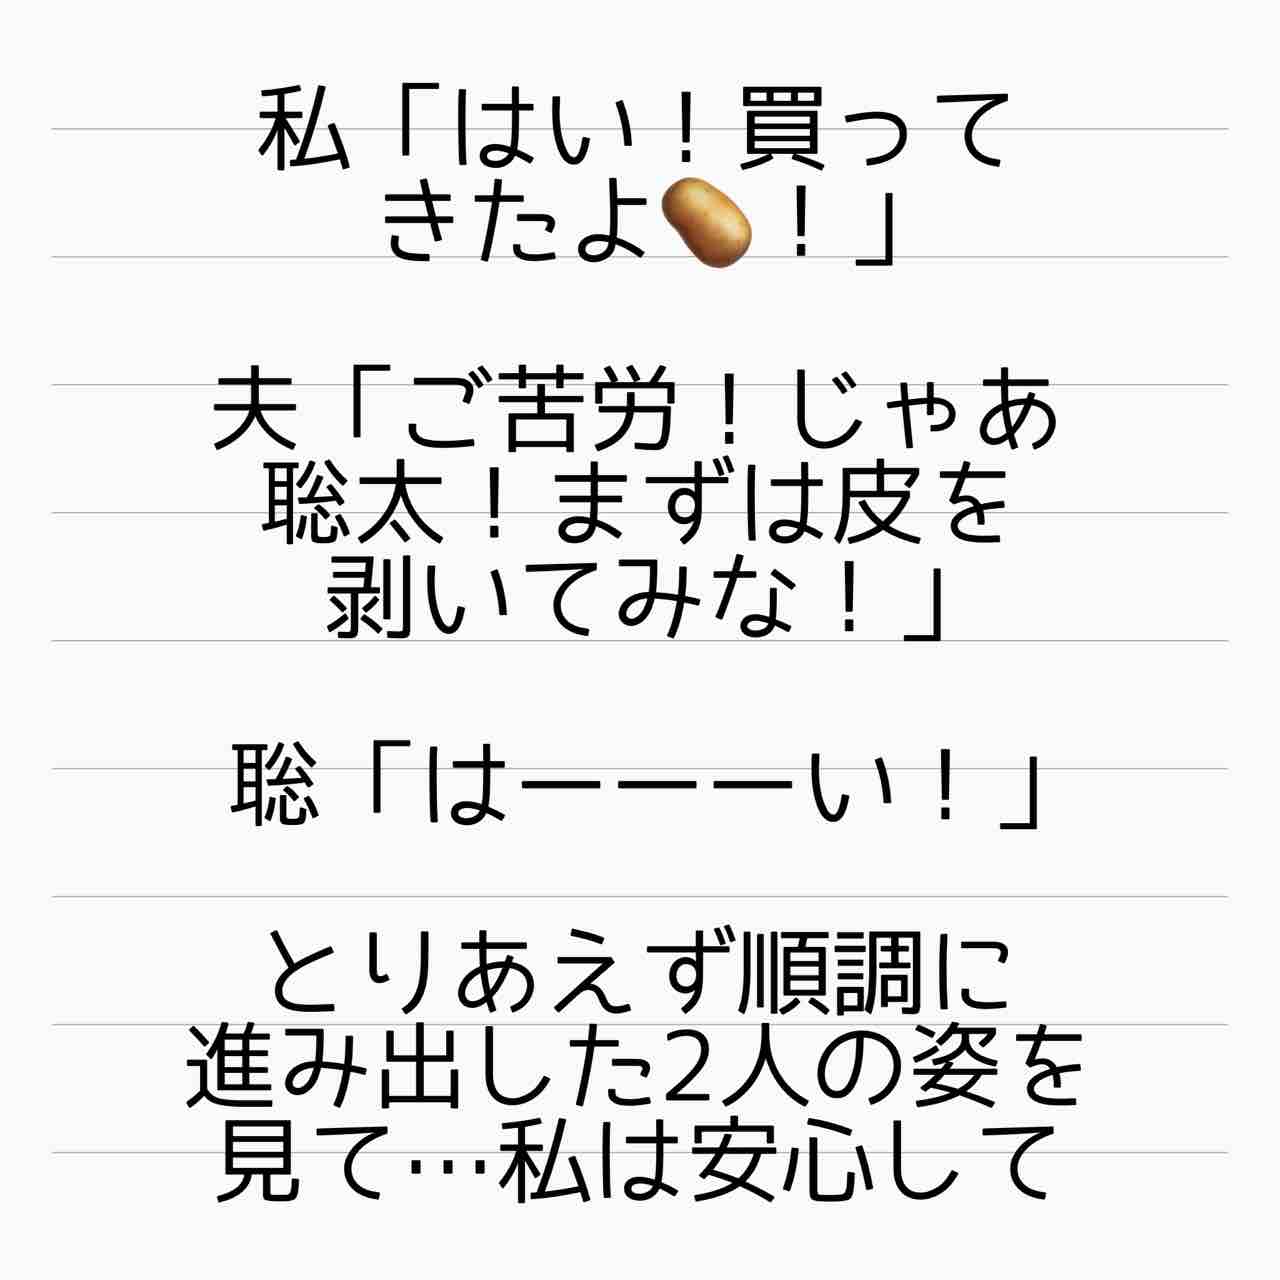 私「はい！買って
きたよ🥔！」
夫「ご苦労！じゃあ
聡太！まずは皮を
剥いてみな！」
聡「はーーーい！」
とりあえず順調に
進み出した2人の姿を
見て…私は安心して